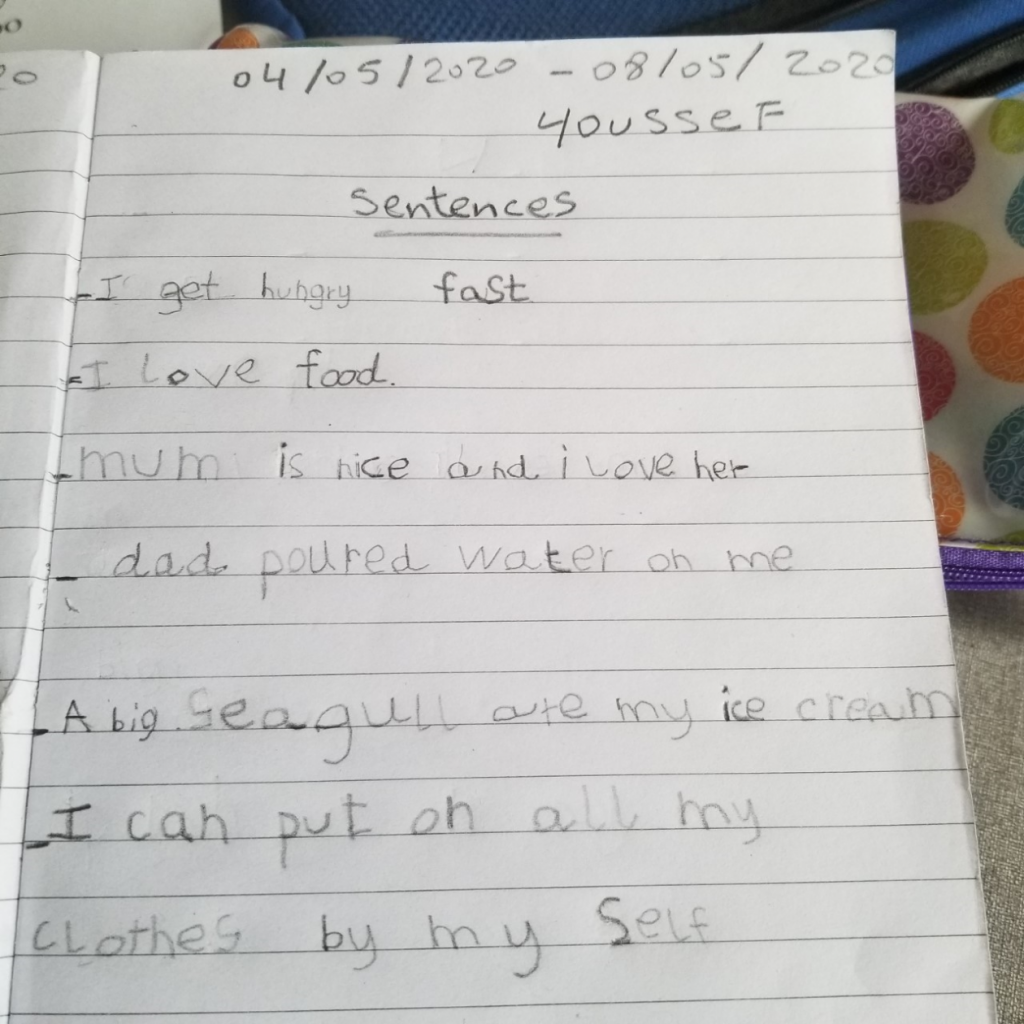 04/05/2020 - 08/05/2020
YousseF
Sentences
- I get hungry fast
- I Love food.
- mum is nice and i Love her
- dad poured water on me
- A big Seagull ate my ice cream
- I can put on all my
cLothes by my Self